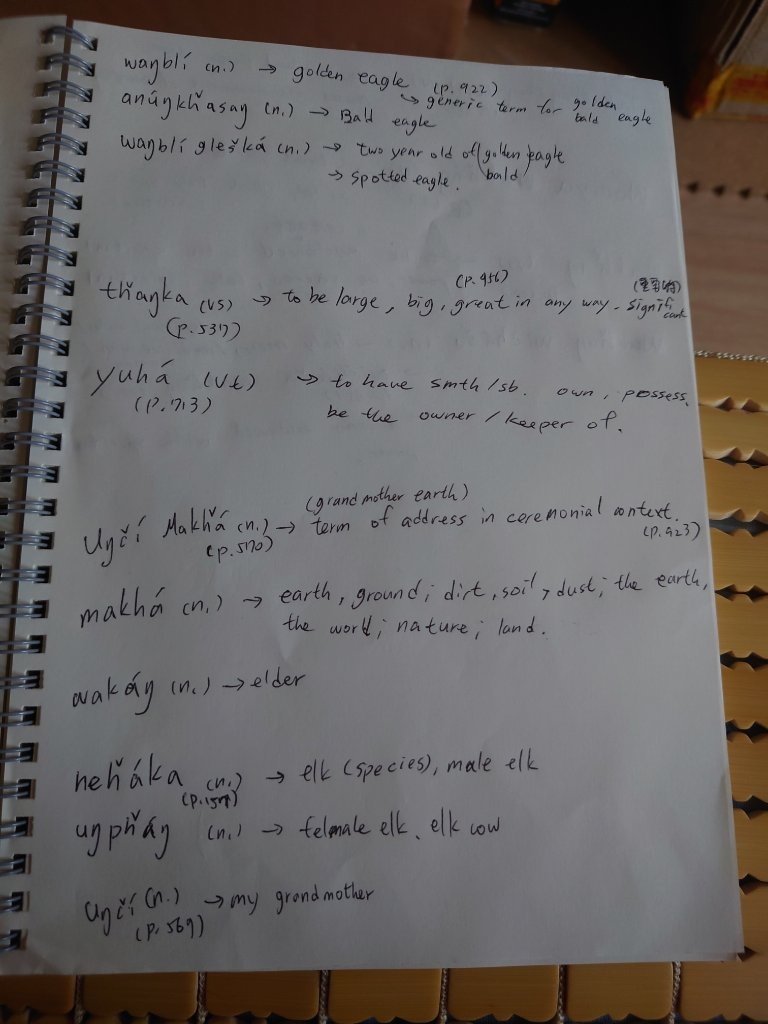 waŋblí (n.) → golden eagle (p.922)
↳ generic term for golden bald eagle
anúŋkȟasaŋ (n.) → Bald eagle
waŋblí glešká (n.) → two year old of (golden bald) eagle
→ spotted eagle.
tȟaŋka (vs) → to be large, big, great in any way. significant
(p.537) (p.956)
yuhá (vt) → to have smth/sb. own, possess,
(p.713) be the owner/keeper of.
(grandmother earth)
Uŋčí Makȟá (n.) → term of address in ceremonial context.
(p.570) (p.923)
makhá (n.) → earth, ground; dirt, soil, dust; the earth,
the world; nature; land.
wakáŋ (n.) → elder
heȟáka (n.) → elk (species), male elk
uŋpȟáŋ (n.) → female elk, elk cow
Uŋčí (n.) → my grandmother
(p.569)